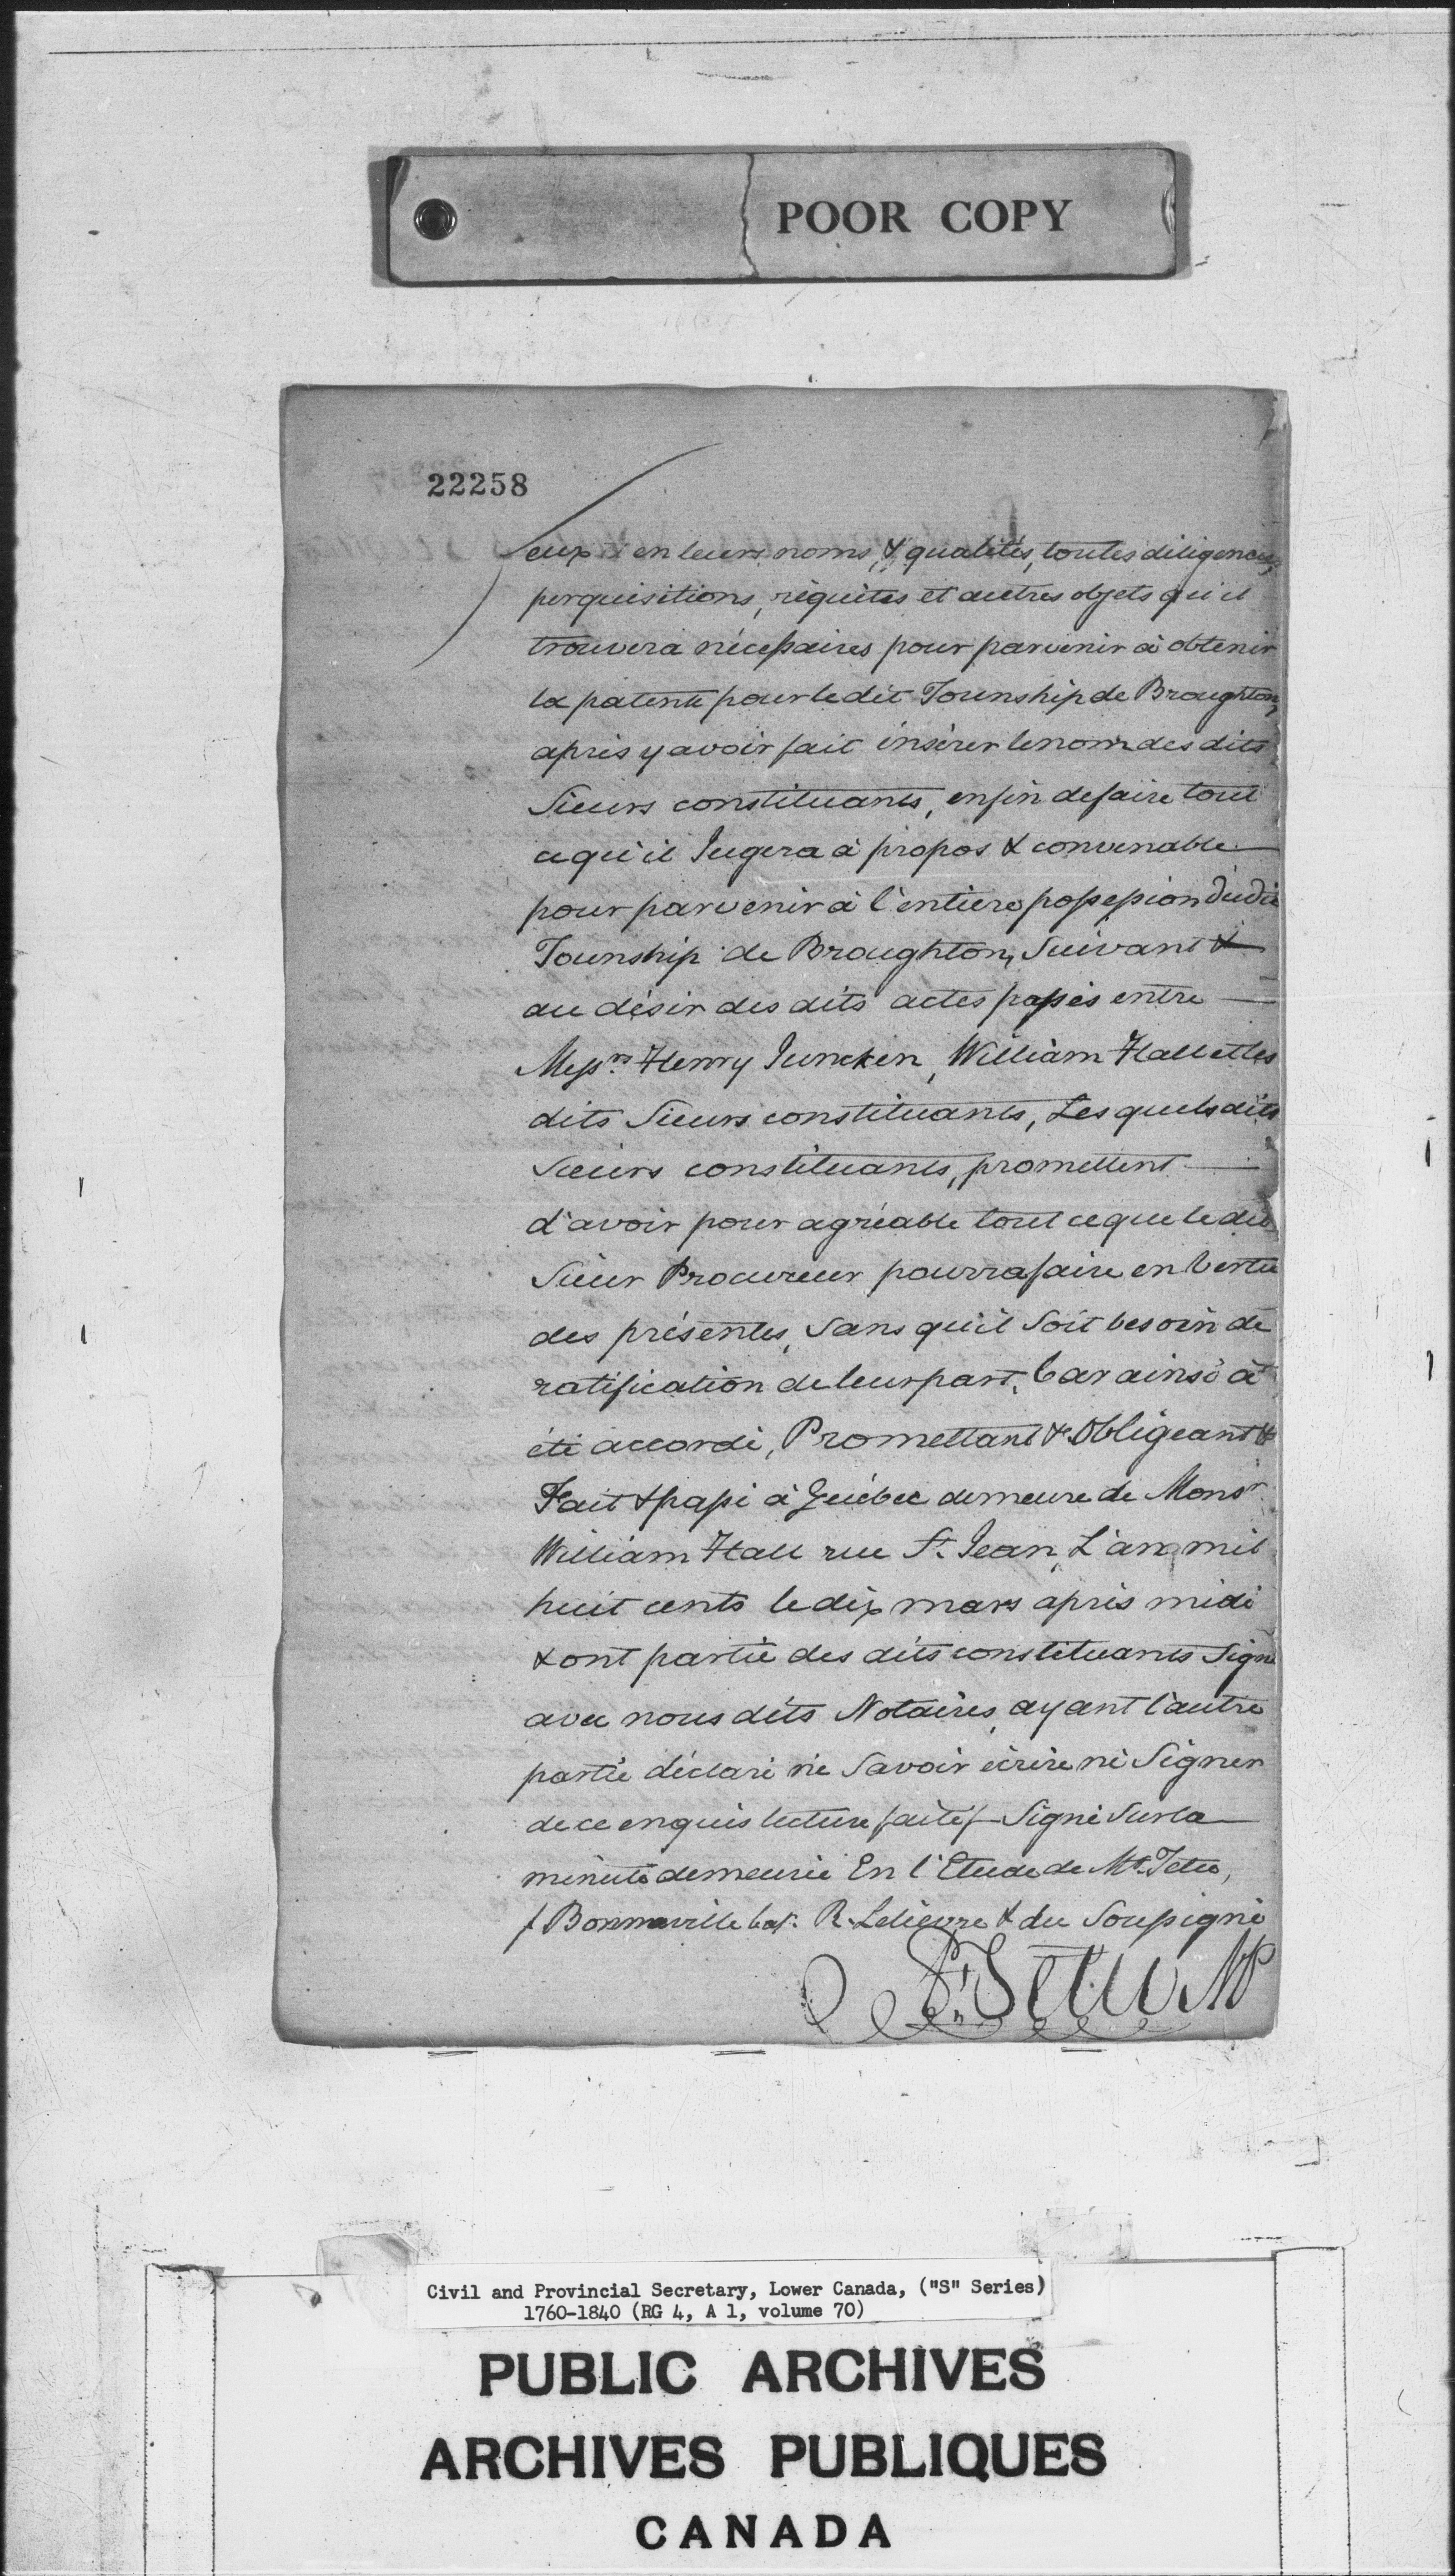 POOR COPY
22258
eux & en leurs noms, & qualités, toutes diligences,
perquisitions, réquêtes et autres objets qu'il
trouvera nécessaires pour parvenir à obtenir
la patente pour le dit Township de Broughton,
après y avoir fait insérer le nom des dits
Sieurs constituants, enfin de faire tout
ce qu'il Jugera à propos & convenable
pour parvenir à l'entiere possession dudit
Township de Broughton, Suivant &
au désir des dits actes passés entre
Messrs Henry Juncken, William Hall et les
dits Sieurs constituants, Les quels dits
Sieurs constituants, promettent
d'avoir pour agréable tout ce que le dit
Sieur Procureur pourra faire en Vertu
des présentes, Sans qu'il Soit besoin de
ratification de leur part, Car ainsi à
été accordé, Promettant & Obligeant &
Fait & passé à Québec demeure de Monsr
William Hall rue St. Jean, L'an mil
huit cents le dix mars après midi
& ont partie des dits constituants Signé
avec nous dits Notaires, ayant l'autre
partie déclaré ne Savoir écrire ni Signer
de ce enquis lecture faite / Signé Sur la
minute demeurée En l'Etude de Mt. Tetu,
/ Bonneville R. Lelievre & du Soussigné
F. Tetu NP
Civil and Provincial Secretary, Lower Canada, ("S" Series)
1760-1840 (RG 4, A 1, volume 70)
PUBLIC ARCHIVES
ARCHIVES PUBLIQUES
CANADA